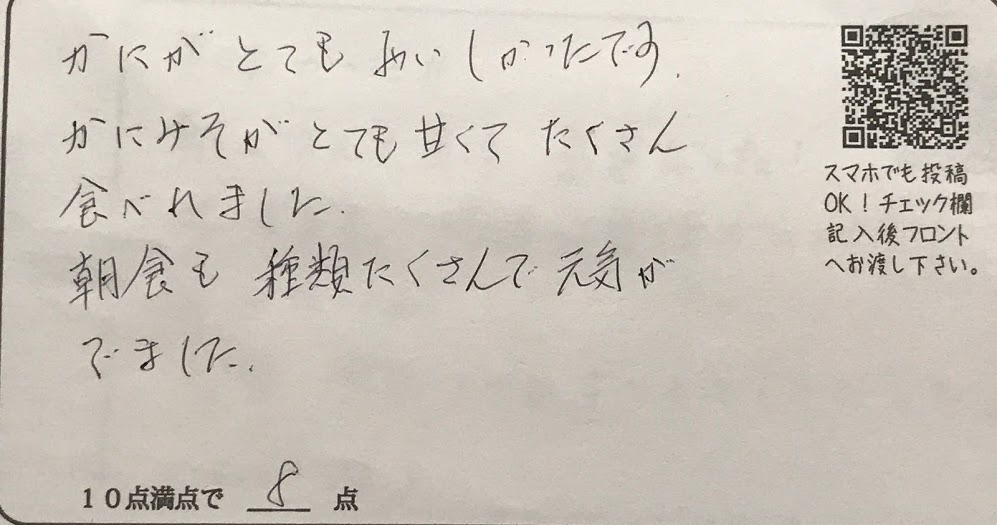 かにがとてもおいしかったです.
かにみそがとても甘くてたくさん
食べれました.
朝食も種類たくさんで元気が
でました.
スマホでも投稿
OK！チェック欄
記入後フロント
へお渡し下さい。
10点満点で 8 点